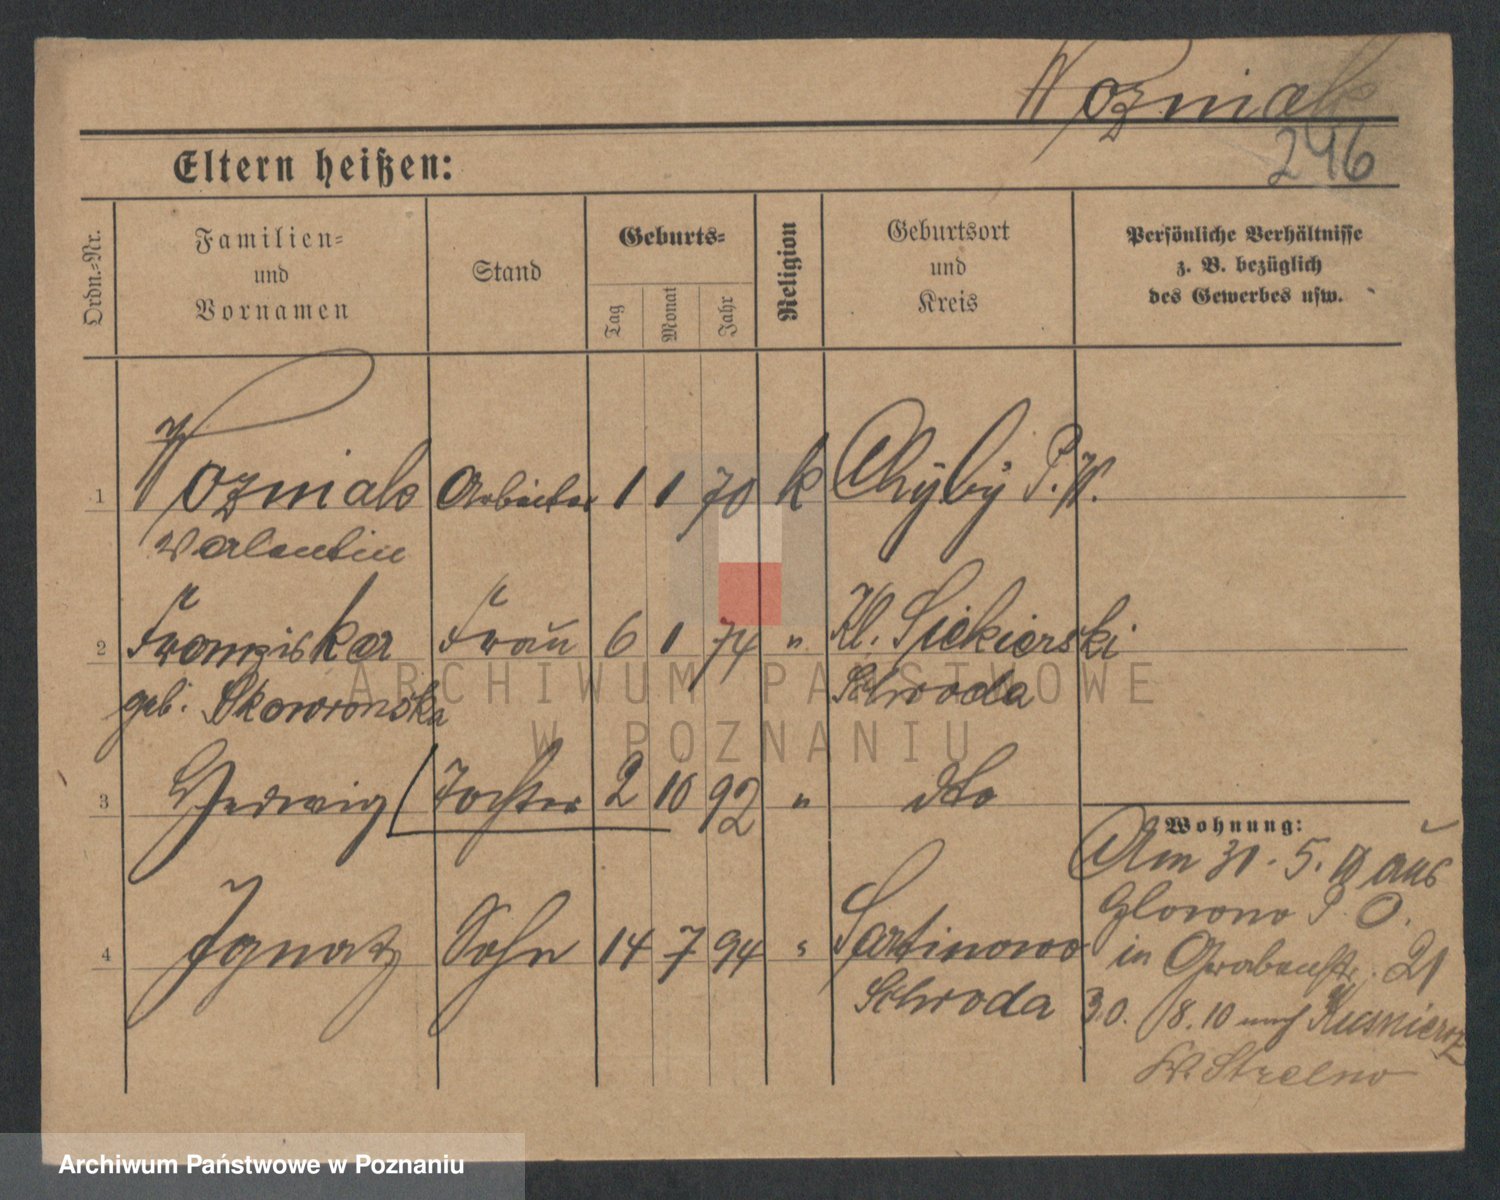 Wozniak
246
Eltern heißen:
Ordn.-Nr.
Familien-
und
Vornamen
Stand
Geburts-
Tag
Monat
Jahr
Religion
Geburtsort
und
Kreis
Persönliche Verhältnisse
z. B. bezüglich
des Gewerbes usw.
1 Wozniak Arbeiter 1 1 70 k Chyby P. W.
Valentin
2 Franziska Frau 6 1 74 " Kl. Siekierski
geb. Skowronska Schroda
3 Hedwig Tochter 2 10 92 " dto
4 Ignatz Sohn 14 7 94 " Sartinowo
Schroda
Wohnung:
Am 31. 5. 10 aus
Glowno P. O.
in Grabenstr. 21
30. 8. 10 nach Kusnierz
Kr. Strelno
ARCHIWUM PAŃSTWOWE
W POZNANIU
Archiwum Państwowe w Poznaniu